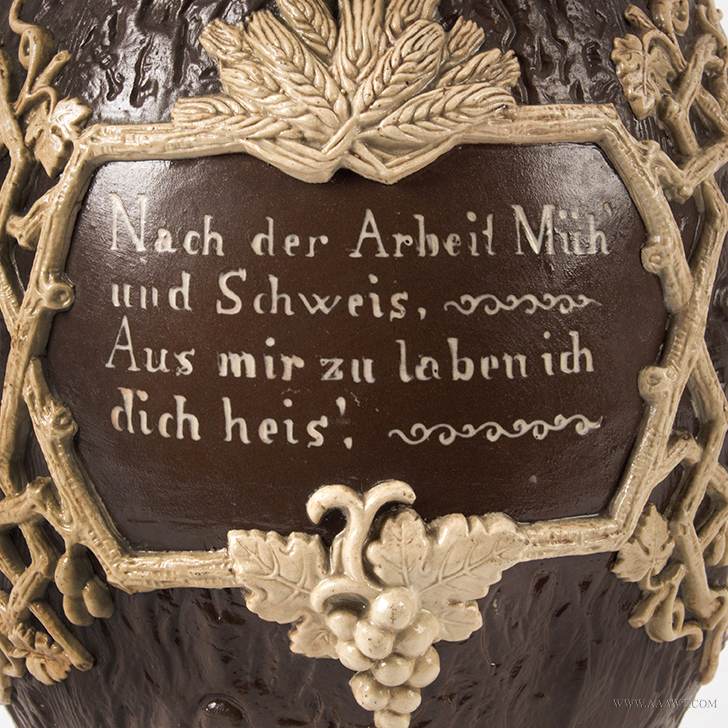 Nach der Arbeit Müh'
und Schweis,
Aus mir zu laben ich
dich heis!
WWW.AAAWT.COM